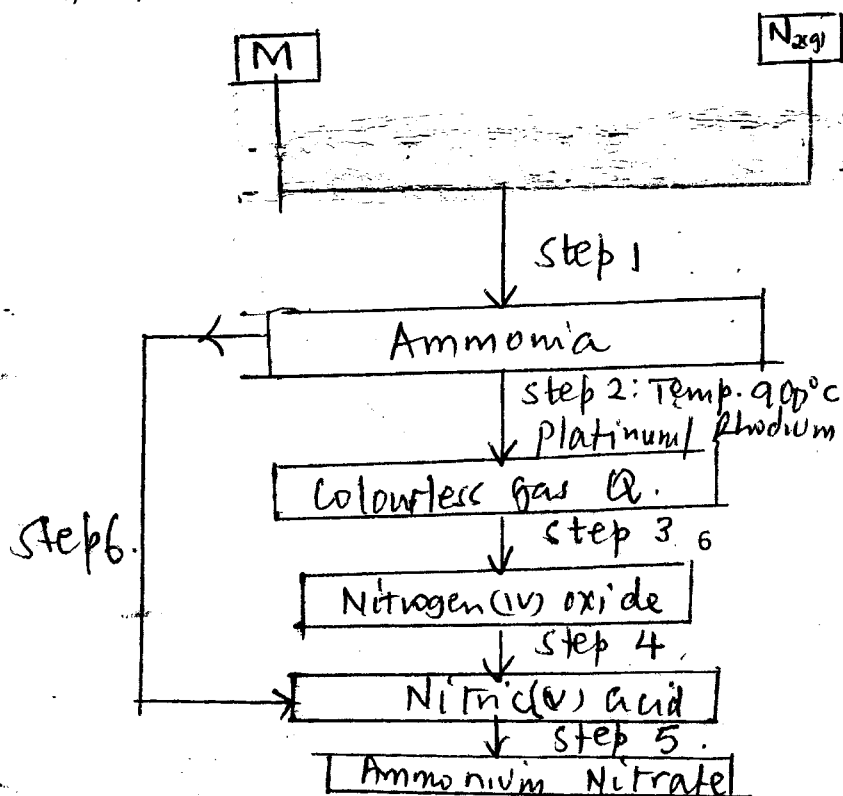 M
N2(g)
Step 1
Ammonia
Step 2: Temp. 900°C
Platinum/ Rhodium
Colourless gas Q.
Step 3 6
Step 6.
Nitrogen(IV) oxide
Step 4
Nitric(V) acid
Step 5.
Ammonium Nitrate